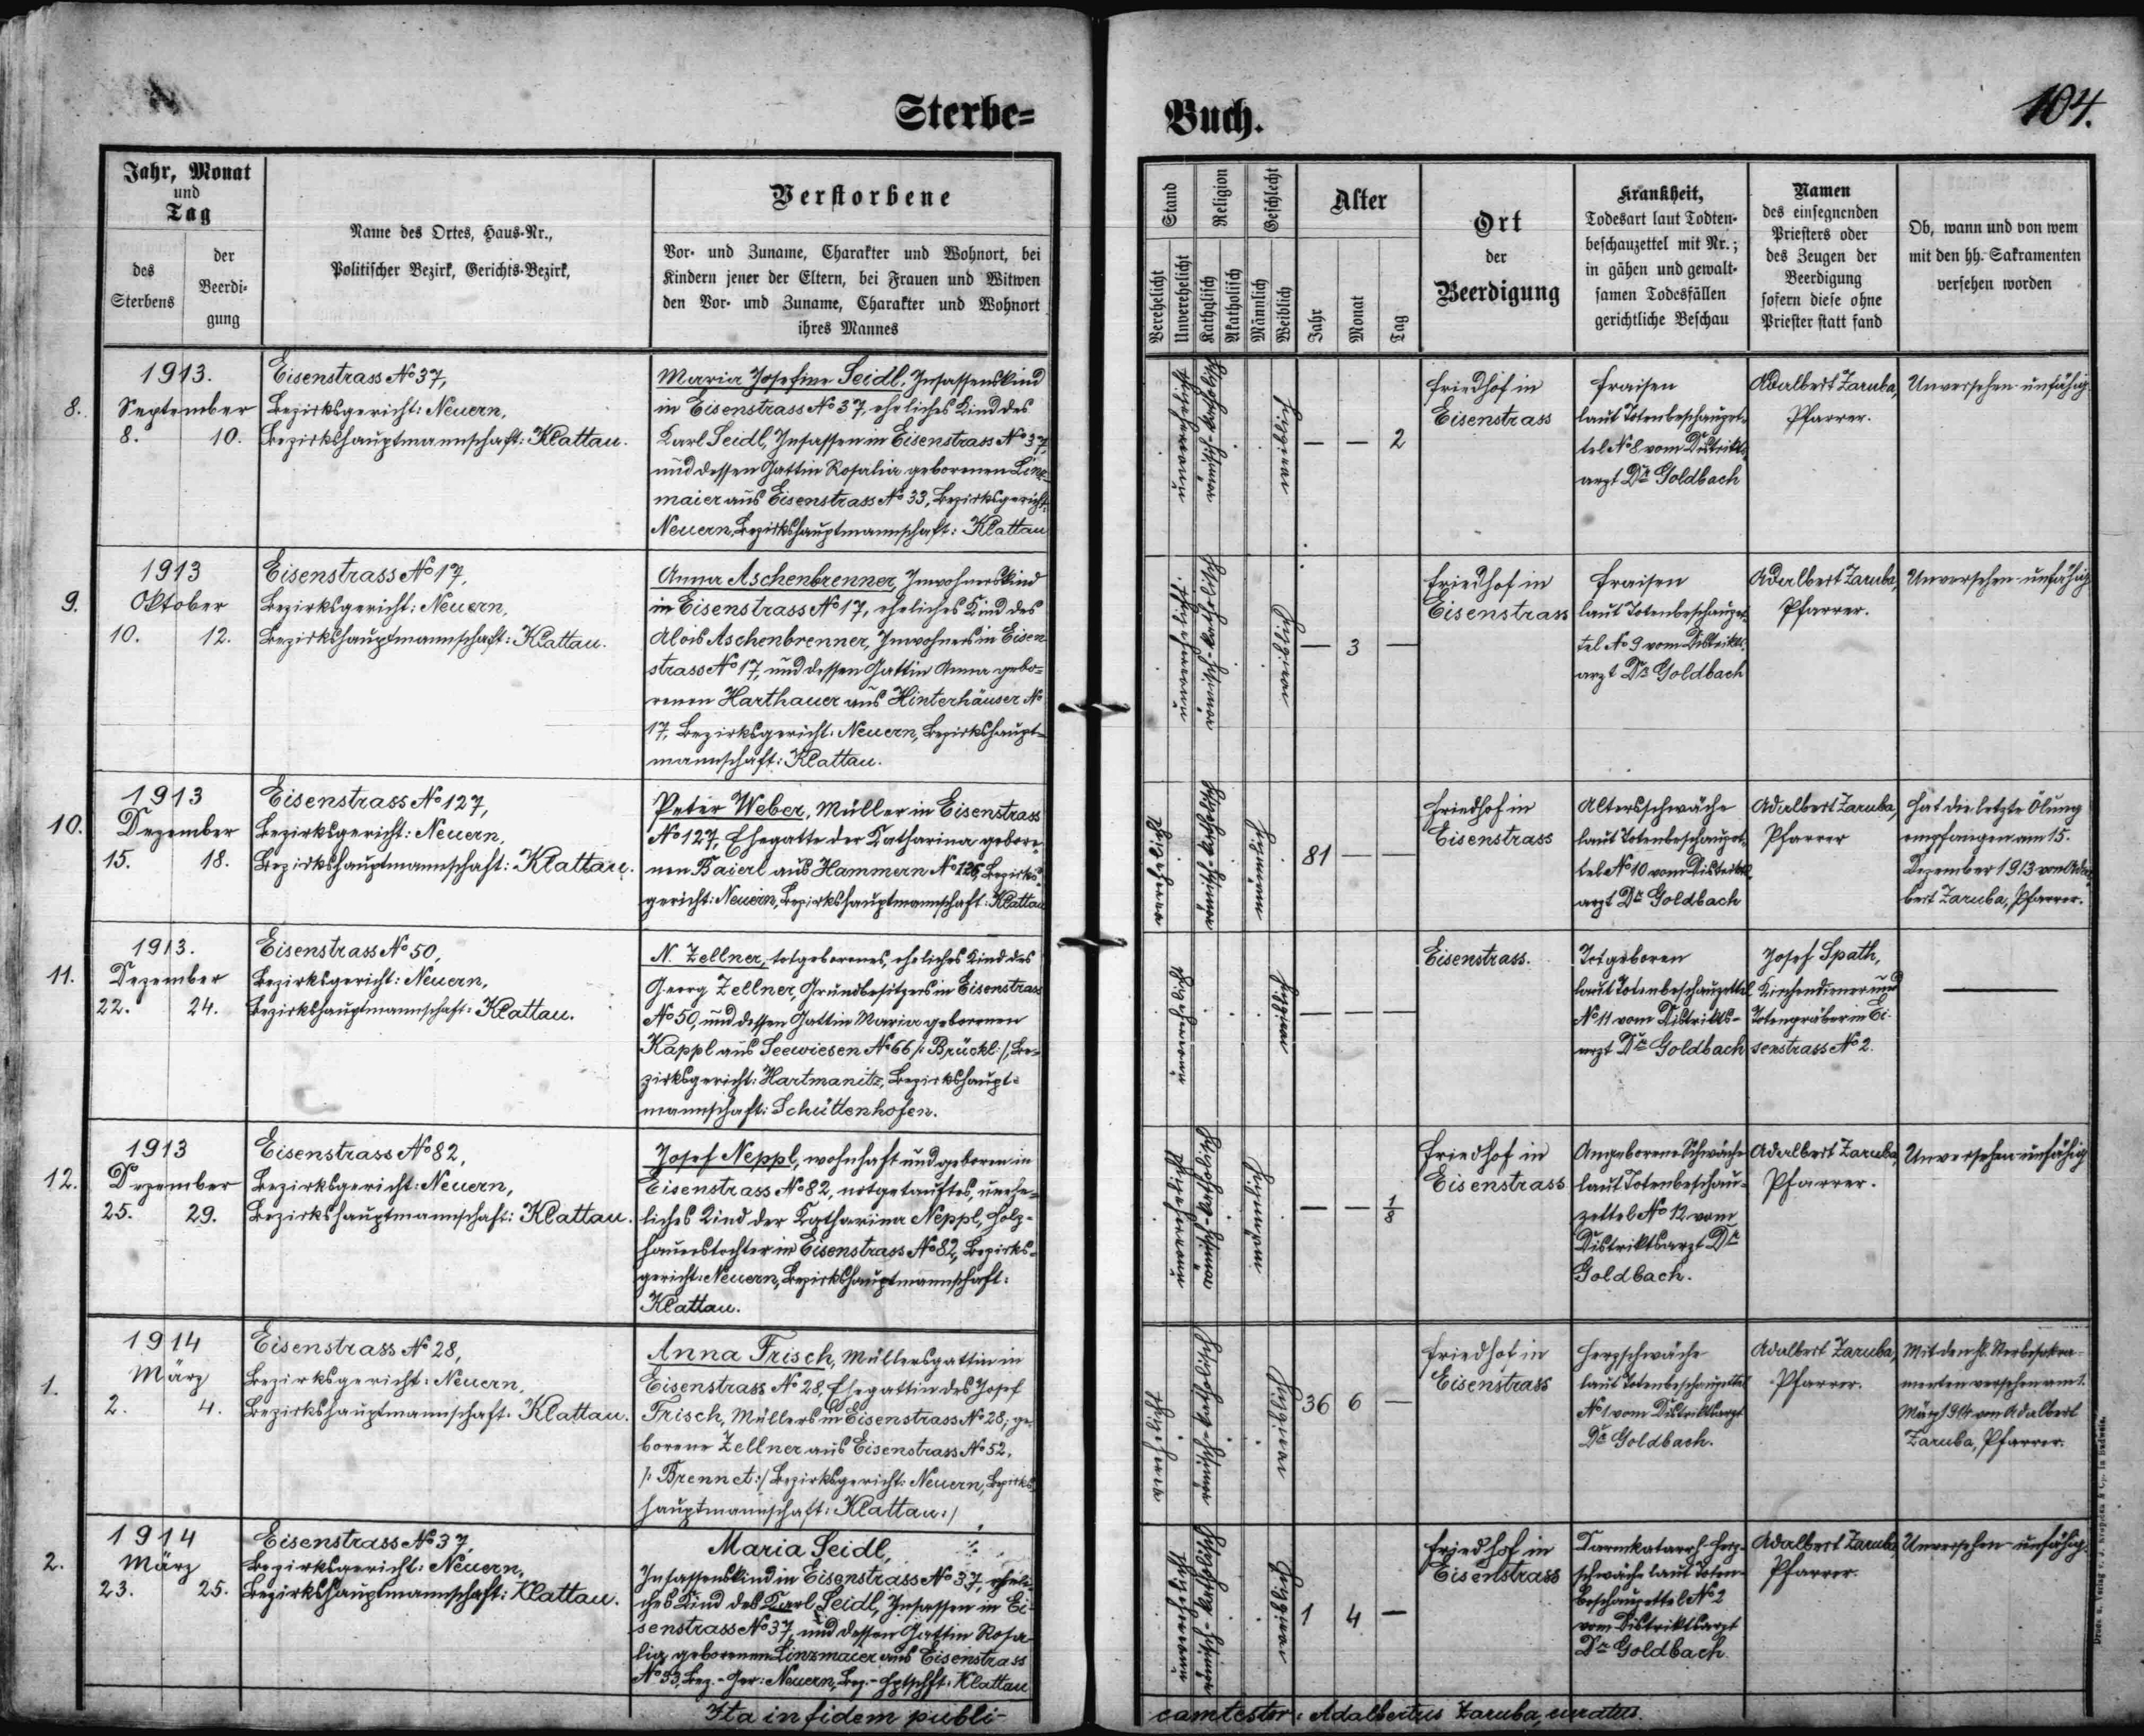 Sterbe=
Buch.
104.
Jahr, Monat
und
Tag
des
Sterbens
der
Beerdi-
gung
Name des Ortes, Haus-Nr.,
Politischer Bezirk, Gerichts-Bezirk,
Verstorbene
Vor- und Zuname, Charakter und Wohnort, bei
Kindern jener der Eltern, bei Frauen und Witwen
den Vor- und Zuname, Charakter und Wohnort
ihres Mannes
Stand
Verehelicht
Unverehelicht
Religion
Katholisch
Akatholisch
Geschlecht
Männlich
Weiblich
Alter
Jahr
Monat
Tag
Ort
der
Beerdigung
Krankheit,
Todesart laut Todten-
beschauzettel mit Nr.;
in gähen und gewalt-
samen Todesfällen
gerichtliche Beschau
Namen
des einsegnenden
Priesters oder
des Zeugen der
Beerdigung
sofern diese ohne
Priester statt fand
Ob, wann und von wem
mit den hh. Sakramenten
versehen worden
8.
1913.
September
8. 10.
Eisenstrass No 37,
Bezirksgericht: Neuern,
Bezirkshauptmannschaft: Klattau.
Maria Josefine Seidl, Insassenskind
in Eisenstrass No 37, eheliches Kind des
Karl Seidl, Insassen in Eisenstrass No 37,
und dessen Gattin Rosalia geborenen Linz-
maier aus Eisenstrass No 33, Bezirksgericht:
Neuern, Bezirkshauptmannschaft: Klattau
unverehelicht
römisch-katholisch
weiblich
— — 2
Friedhof in
Eisenstrass
Fraisen
laut Totenbeschauzet-
tel No 8 vom Distrikts-
arzt Dr. Goldbach
Adalbert Zaruba,
Pfarrer.
Unversehen unfähig
9.
1913
Oktober
10. 12.
Eisenstrass No 17,
Bezirksgericht: Neuern,
Bezirkshauptmannschaft: Klattau.
Anna Aschenbrenner, Inwohnerskind
in Eisenstrass No 17, eheliches Kind des
Alois Aschenbrenner, Inwohners in Eisen-
strass No 17, und dessen Gattin Anna gebo-
renen Harthauer aus Hinterhäuser No
17, Bezirksgericht: Neuern, Bezirkshaupt-
mannschaft: Klattau.
unverehelicht.
römisch-katholisch
weiblich
— 3 —
Friedhof in
Eisenstrass
Fraisen
laut Totenbeschauzet-
tel No 9 vom Distrikts-
arzt Dr. Goldbach
Adalbert Zaruba,
Pfarrer.
Unversehen unfähig
10.
1913
Dezember
15. 18.
Eisenstrass No 127,
Bezirksgericht: Neuern,
Bezirkshauptmannschaft: Klattau.
Peter Weber, Müller in Eisenstrass
No 127, Ehegatte der Katharina gebore-
nen Baierl aus Hammern No 126, Bezirks-
gericht: Neuern, Bezirkshauptmannschaft: Klattau
verehelicht
römisch-katholisch
männlich
81 — —
Friedhof in
Eisenstrass
Altersschwäche
laut Totenbeschauzet-
tel No 10 vom Distrikts-
arzt Dr. Goldbach
Adalbert Zaruba,
Pfarrer
Hat die letzte Ölung
empfangen am 15.
Dezember 1913 von Adal-
bert Zaruba, Pfarrer.
11.
1913.
Dezember
22. 24.
Eisenstrass No 50,
Bezirksgericht: Neuern,
Bezirkshauptmannschaft: Klattau.
N. Zellner, totgeborenes, eheliches Kind des
Georg Zellner, Grundbesitzers in Eisenstrass
No 50, und dessen Gattin Maria geborenen
Kappl aus Seewiesen No 66 /: Brückl :/, Be-
zirksgericht: Hartmanitz, Bezirkshaupt-
mannschaft: Schüttenhofen.
unverehelicht
weiblich
— — —
Eisenstrass.
Totgeboren
laut Totenbeschauzettel
No 11 vom Distrikts-
arzt Dr. Goldbach
Josef Spath,
Kirchendiener und
Totengräber in Ei-
senstrass No 2.
—
12.
1913
Dezember
25. 29.
Eisenstrass No 82,
Bezirksgericht: Neuern,
Bezirkshauptmannschaft: Klattau.
Josef Neppl, wohnhaft und geboren in
Eisenstrass No 82, notgetauftes, unehe-
liches Kind der Katharina Neppl, Holz-
hauerstochter in Eisenstrass No 82, Bezirks-
gericht: Neuern, Bezirkshauptmannschaft:
Klattau.
unverehelicht
römisch-katholisch
männlich
— — 1/8
Friedhof in
Eisenstrass
Angeborene Schwäche
laut Totenbeschau-
zettel No 12 vom
Distriktsarzt Dr.
Goldbach.
Adalbert Zaruba,
Pfarrer.
Unversehen unfähig
1.
1914
März
2. 4.
Eisenstrass No 28,
Bezirksgericht: Neuern,
Bezirkshauptmannschaft. Klattau.
Anna Frisch, Müllersgattin in
Eisenstrass No 28, Ehegattin des Josef
Frisch, Müllers in Eisenstrass No 28, ge-
borene Zellner aus Eisenstrass No 52.
/: Brennet :/ Bezirksgericht: Neuern, Bezirks-
hauptmannschaft: Klattau :/
verehelicht
römisch-katholisch
weiblich
36 6 —
Friedhof in
Eisenstrass
Herzschwäche
laut Totenbeschauzettel
No 1 vom Distriktsarzt
Dr. Goldbach.
Adalbert Zaruba,
Pfarrer.
Mit den hl. Sterbesakra-
menten versehen am 1.
März 1914 von Adalbert
Zaruba, Pfarrer.
2.
1914
März
23. 25.
Eisenstrass No 37,
Bezirksgericht: Neuern,
Bezirkshauptmannschaft: Klattau.
Maria Seidl,
Insassenskind in Eisenstrass No 37, eheli-
ches Kind des Karl Seidl, Insassen in Ei-
senstrass No 37, und dessen Gattin Rosa-
lia geborenen Linzmaier aus Eisenstrass
No 33, Bez.-Ger: Neuern, Bez.-Hptschft: Klattau
unverehelicht
römisch-katholisch
weiblich
1 4 —
Friedhof in
Eisenstrass
Darmkatarrh-Herz-
schwäche laut Toten-
beschauzettel No 2
vom Distriktsarzt
Dr. Goldbach
Adalbert Zaruba,
Pfarrer.
Unversehen unfähig.
Ita in fidem publi-
cam testor: Adalbertus Zaruba, curatus.